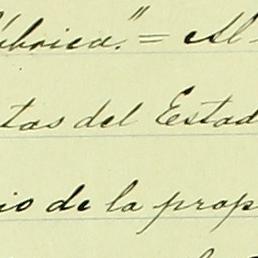 úbrica." = Al
tas del Estad
io de la prop